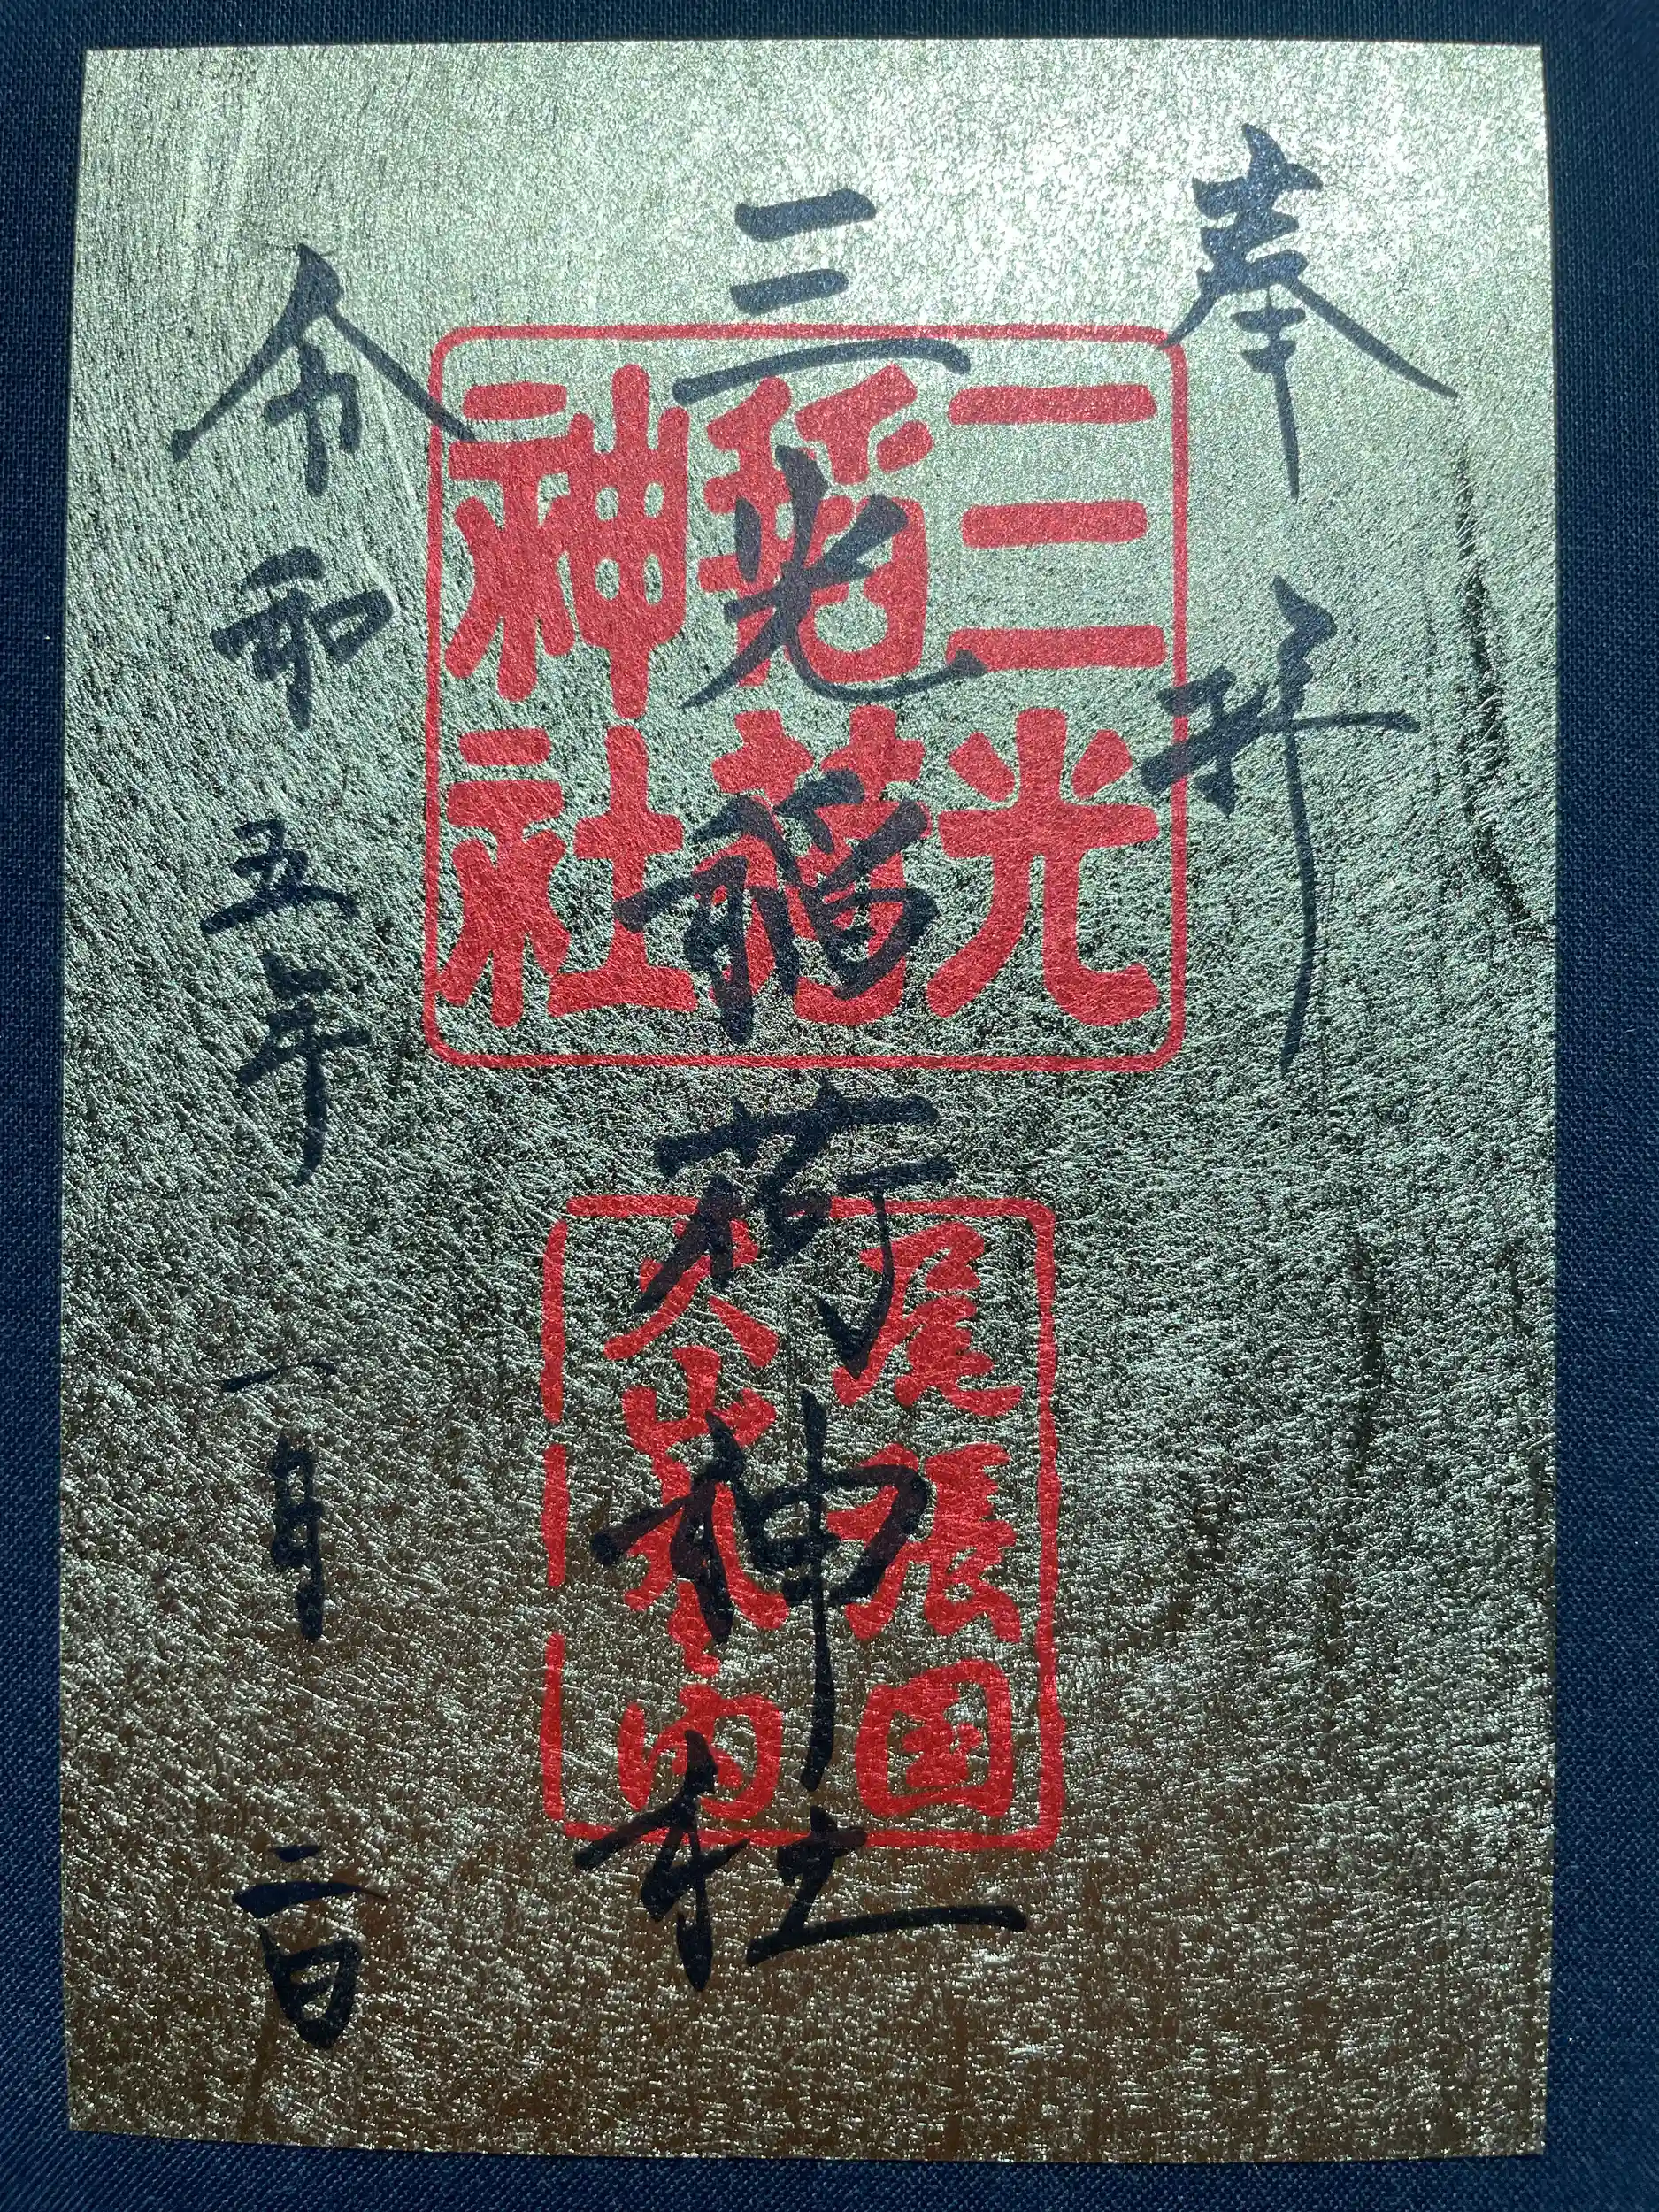 奉拝
三光稲荷神社
令和五年一月二日
三光
稲荷
神社
尾張国
犬山城内